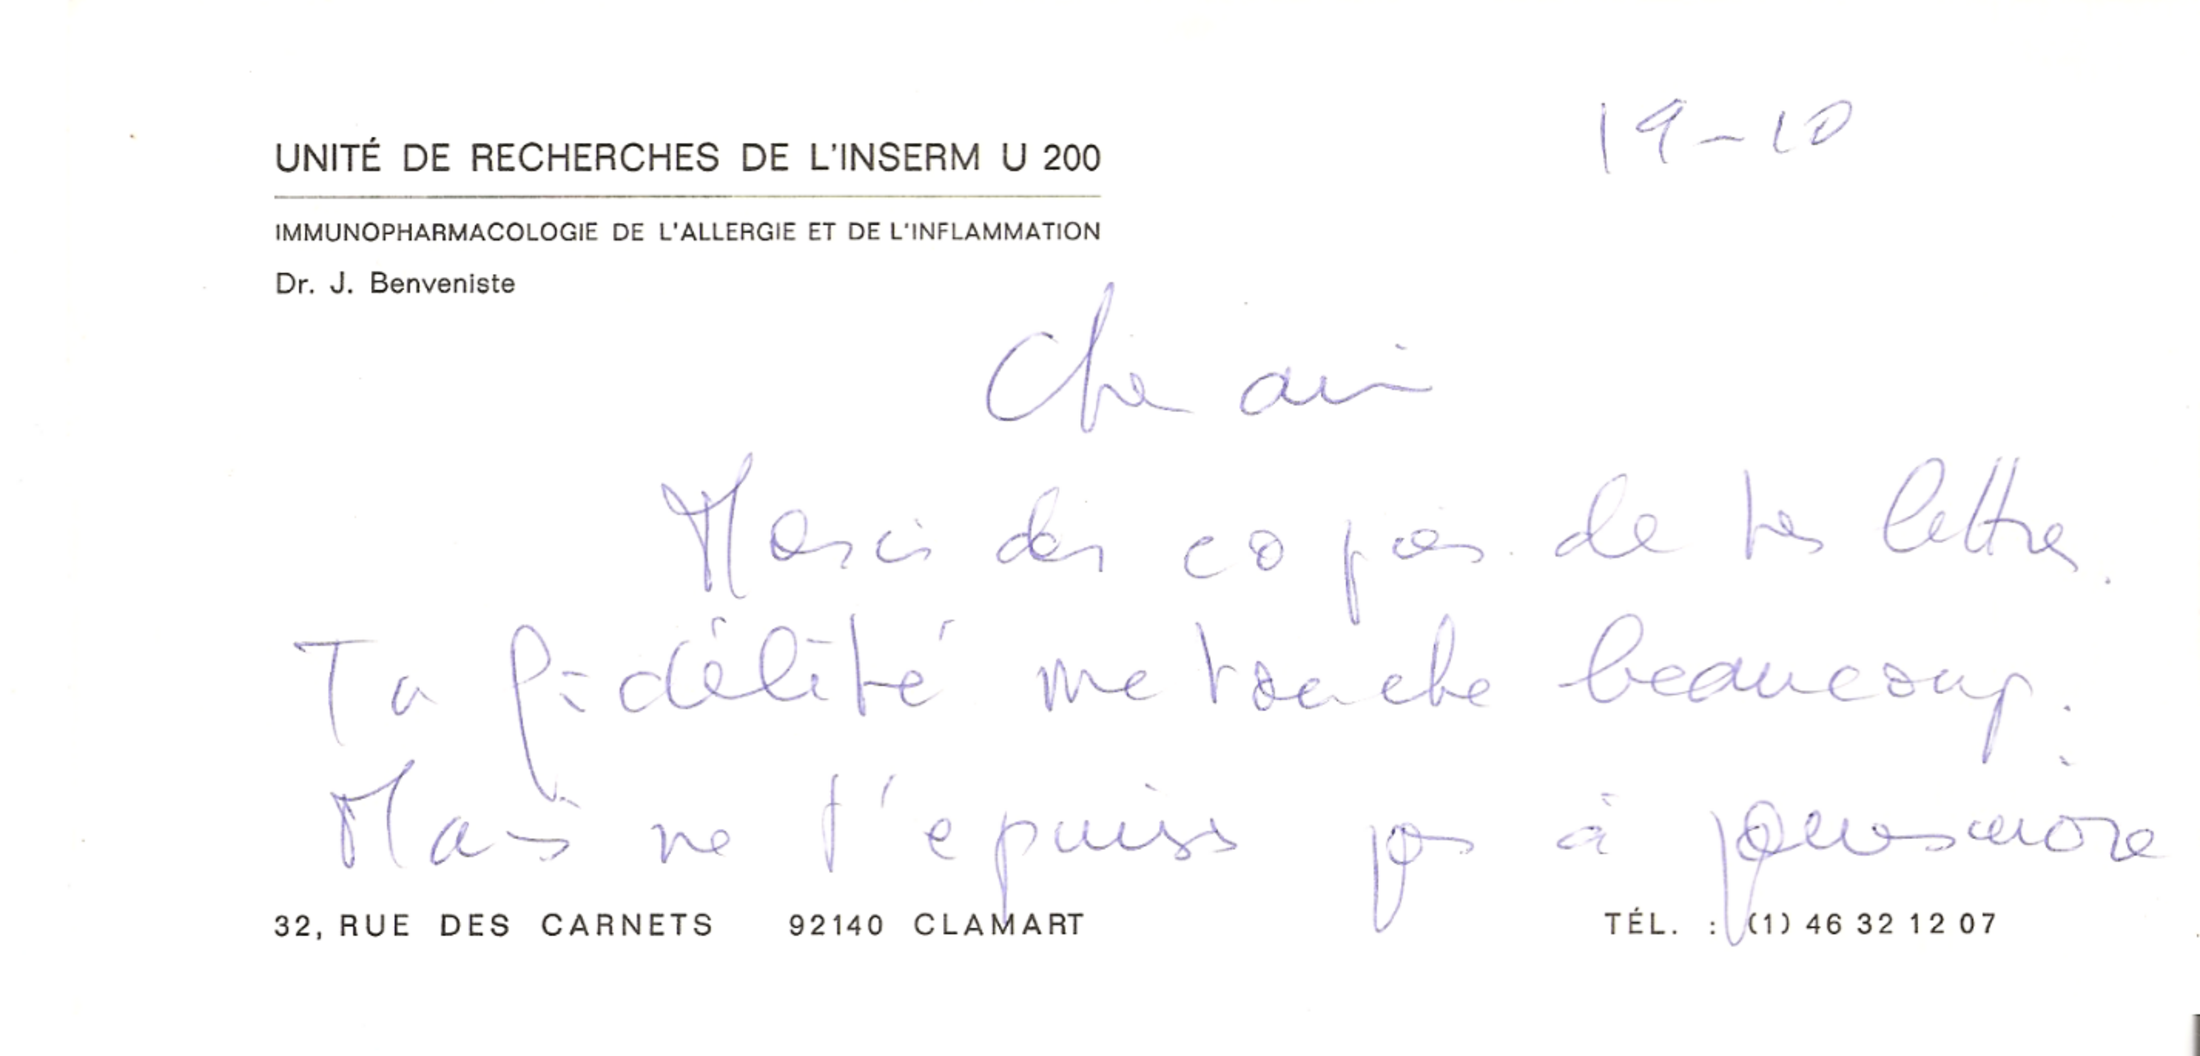 19-10
UNITÉ DE RECHERCHES DE L'INSERM U 200
IMMUNOPHARMACOLOGIE DE L'ALLERGIE ET DE L'INFLAMMATION
Dr. J. Benveniste
Cher ami
Merci des copies de tes lettres.
Ta fidélité me touche beaucoup.
Mais ne t'épuises pas à
32, RUE DES CARNETS 92140 CLAMART TÉL. : (1) 46 32 12 07